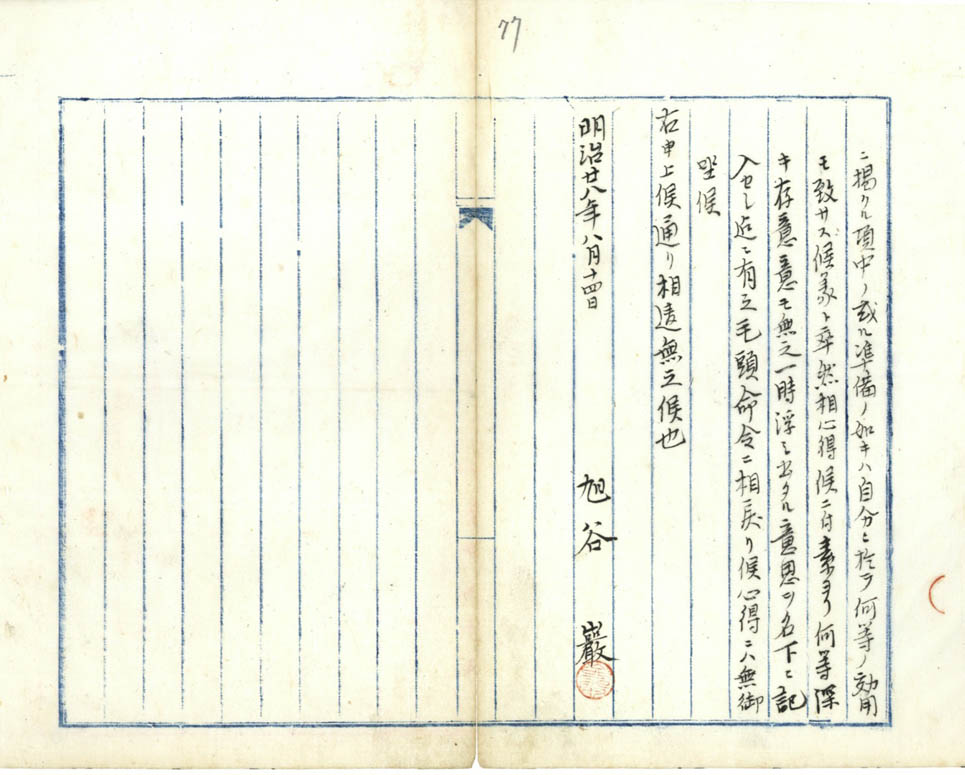 77
ニ掲クル項中ノ或ル準備ノ如キハ自分ニ於テ何等ノ効用
モ致サズ候義ト卒然相心得候ニ付素ヨリ何等深
キ存意意モ無之一時浮ミ出タル意思ヲ名下ニ記
入セシ迄ニ有之毛頭命令ニ相戻リ候心得ニハ無御
坐候
右申上候通リ相違無之候也
明治廿八年八月十四日
旭谷 巖